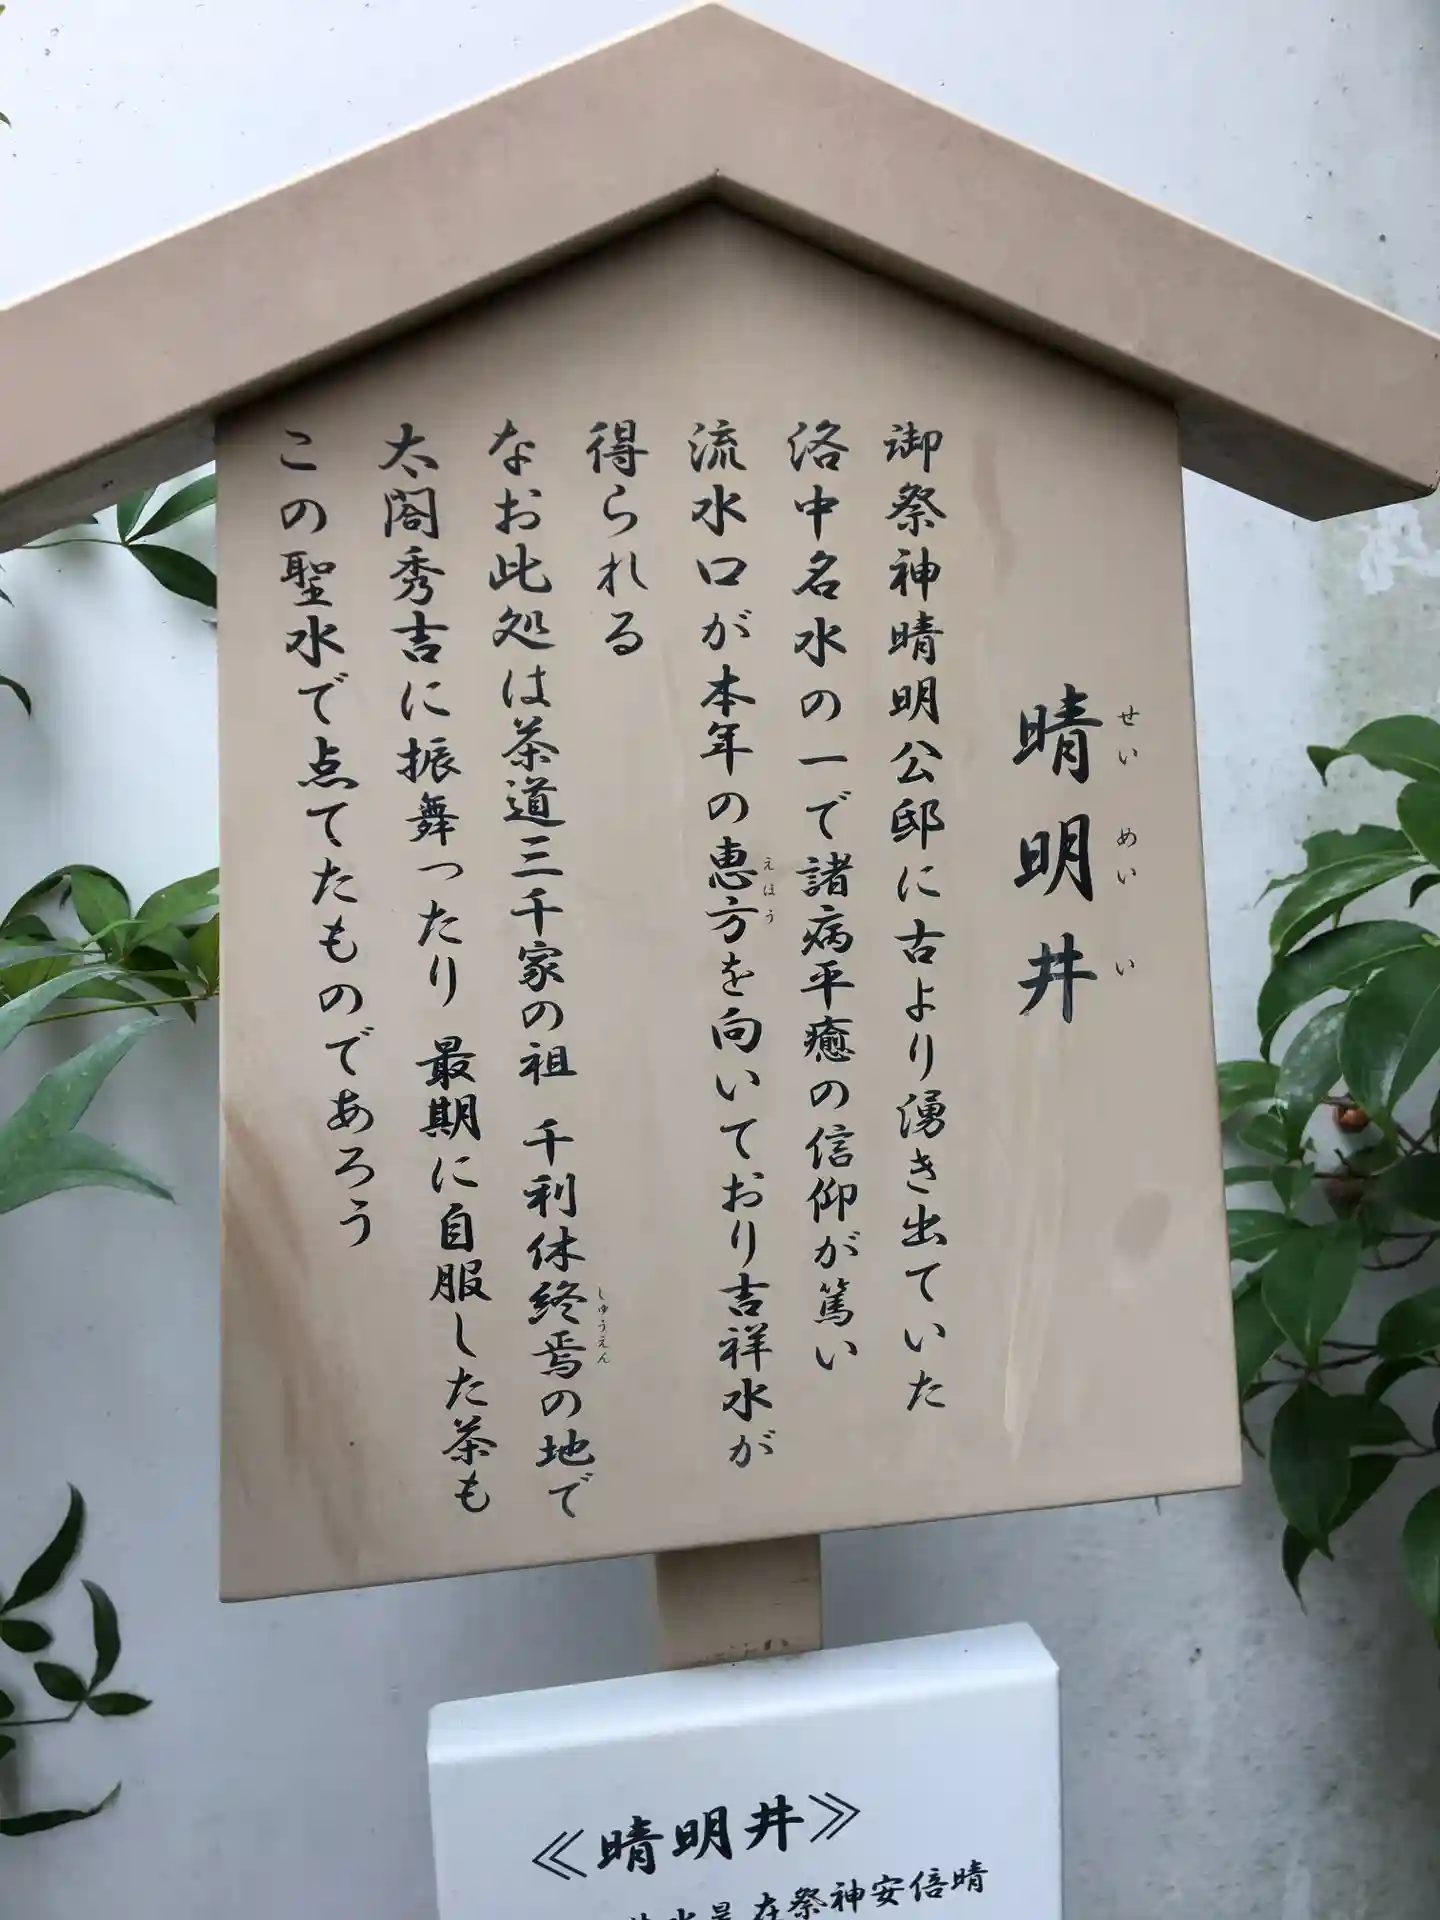 晴明井
せいめいい
御祭神晴明公邸に古より湧き出ていた
洛中名水の一で諸病平癒の信仰が篤い
流水口が本年の恵方を向いており吉祥水が
えほう
得られる
なお此処は茶道三千家の祖 千利休終焉の地で
しゅうえん
太閤秀吉に振舞ったり 最期に自服した茶も
この聖水で点てたものであろう
≪晴明井≫
在祭神安倍晴